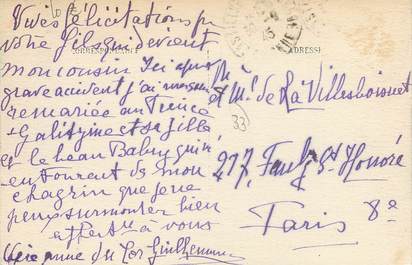 Vives félicitations pr
votre fils qui devient
mon cousin Ici après
grave accident j'ai
remariée au Prince
Galitzine et sa fille
et le beau
entourent de mon
chagrin que je ne
peux surmonter bien
à vous
CORRESPONDANCE
ADRESSE
M
et Me de La Villesboisnet
33
217, Faubg St Honoré
Paris 8e